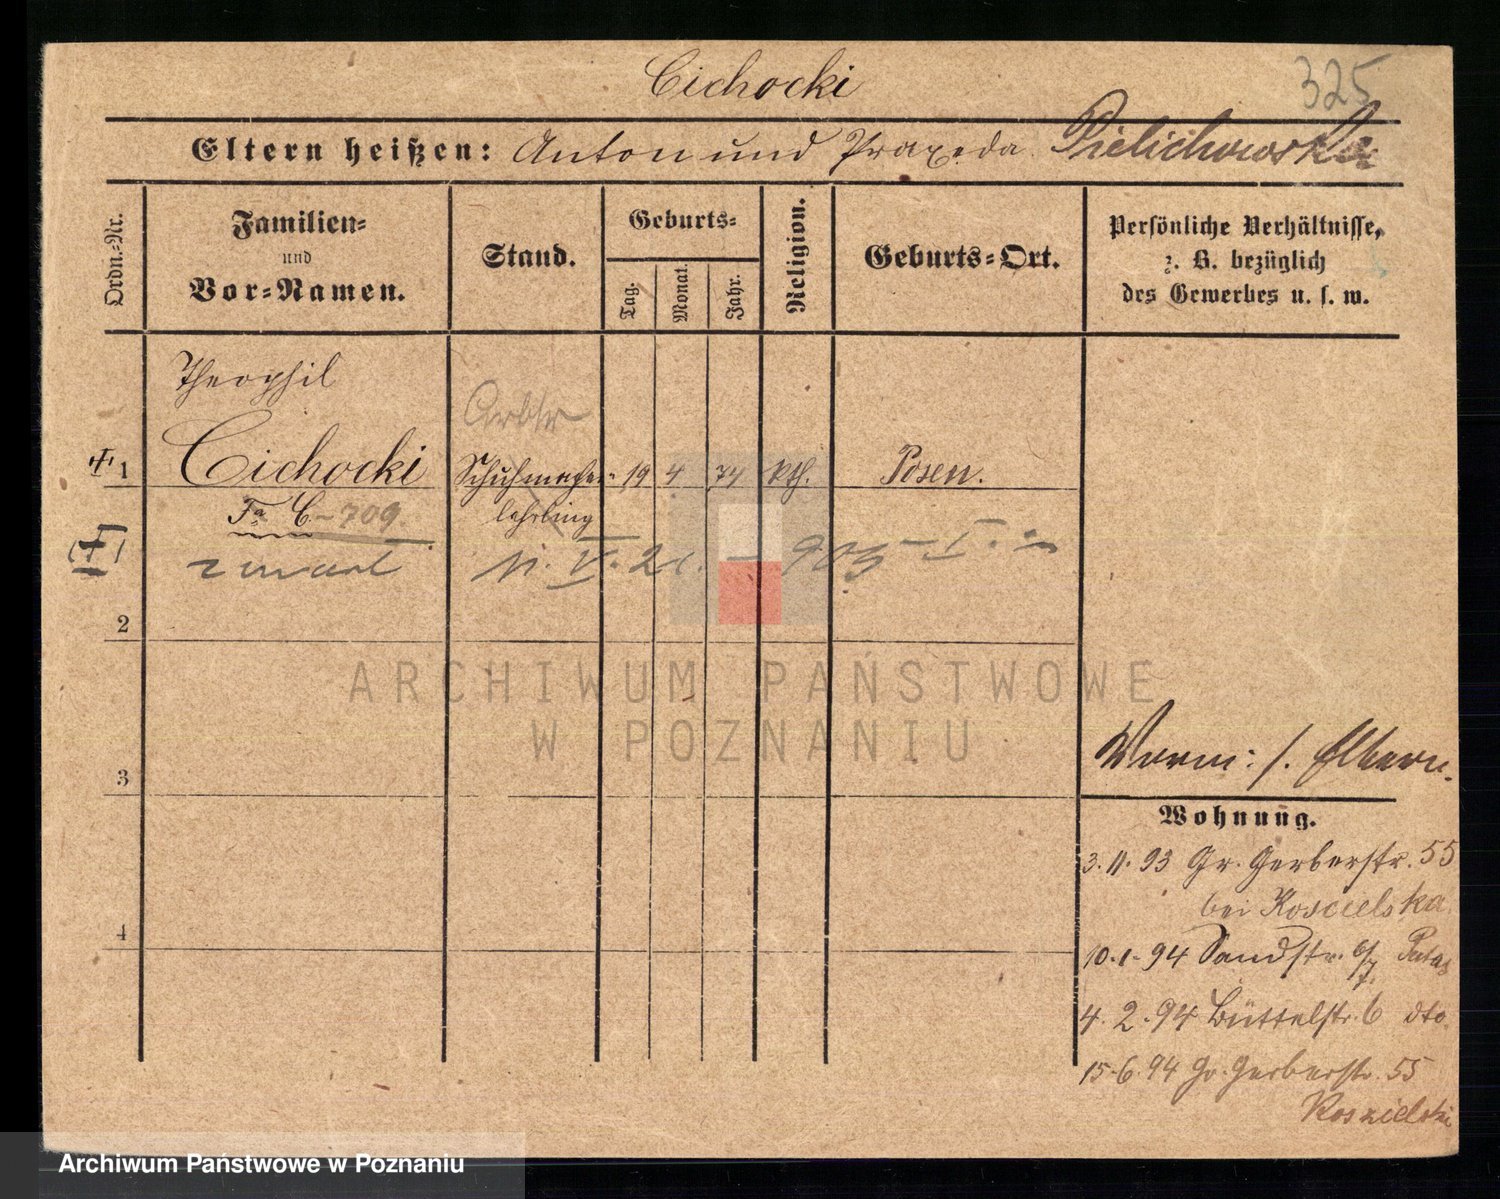 Cichocki
325
Eltern heißen: Anton und Praxeda Pielichowska
Ordn.-Nr.
Familien-
und
Vor-Namen.
Stand.
Geburts-
Tag.
Monat.
Jahr.
Religion.
Geburts-Ort.
Persönliche Verhältnisse,
z. B. bezüglich
des Gewerbes u. s. w.
Theophil
Arbtr
1 Cichocki Schuhmacher- 19 4 74 kth. Posen.
Fa C-709. lehrling
zmarł 11. V. 21. - 903 - I.
2
ARCHIWUM PAŃSTWOWE
W POZNANIU
3
4
Vorm: s. Eltern.
Wohnung.
3. 11. 93 Gr. Gerberstr. 55
bei Koscielska
10. 1. 94 Sandstr. 6/7
4. 2. 94 Büttelstr. 6 dto.
15. 6. 94 Gr. Gerberstr. 55
Koszielski
Archiwum Państwowe w Poznaniu